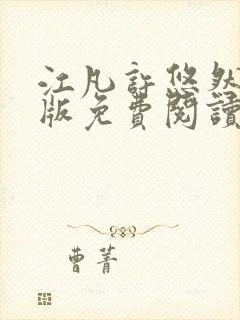 江凡許悠然
版免費閱讀
曹菁